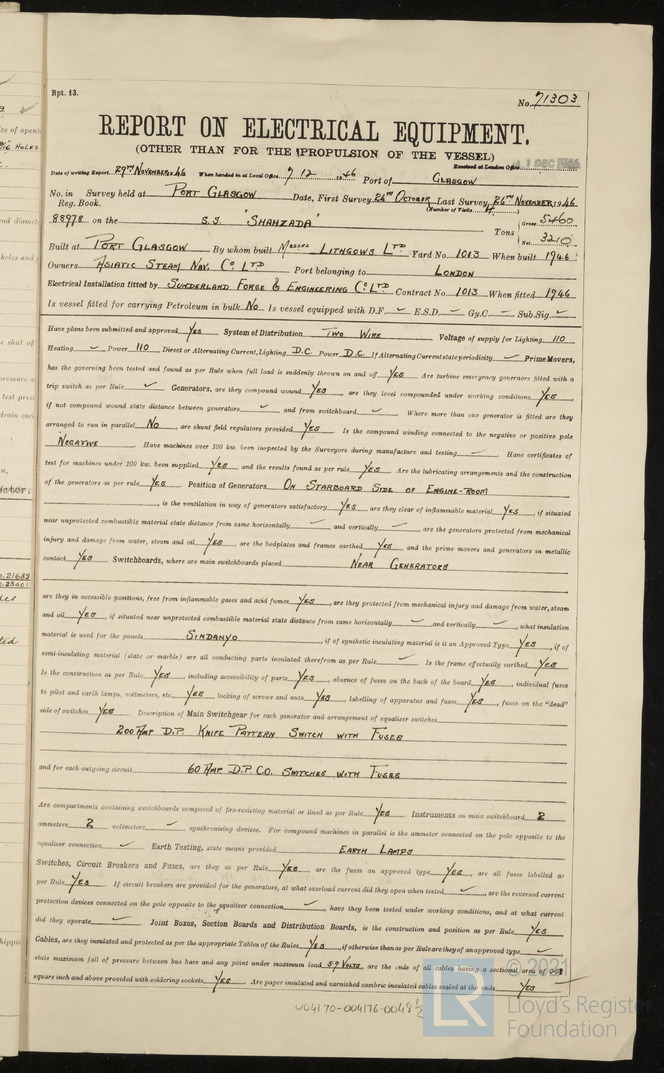 Rpt. 13.
No. 71303
REPORT ON ELECTRICAL EQUIPMENT.
(OTHER THAN FOR THE PROPULSION OF THE VESSEL)
Received at London Office
DEC 1946
Date of writing Report 29TH NOVEMBER 1946 When handed in at Local Office 7 12 1946 Port of GLASGOW
No. in Survey held at PORT GLASGOW Date, First Survey 24TH OCTOBER Last Survey 26TH NOVEMBER 1946
Reg. Book. (Number of Visits 4)
88978 on the S.S. 'SHAHZADA' Tons Gross 5460 Net 3210
Built at PORT GLASGOW By whom built MESSRS LITHGOWS LTD Yard No. 1013 When built 1946
Owners ASIATIC STEAM NAV. CO. LTD Port belonging to LONDON
Electrical Installation fitted by SUNDERLAND FORGE & ENGINEERING CO LTD Contract No. 1013 When fitted 1946
Is vessel fitted for carrying Petroleum in bulk NO Is vessel equipped with D.F. – E.S.D. – Gy.C – Sub.Sig. –
Have plans been submitted and approved YES System of Distribution TWO WIRE Voltage of supply for Lighting 110
Heating – Power 110 Direct or Alternating Current, Lighting D.C Power D.C. If Alternating Current state periodicity – Prime Movers,
has the governing been tested and found as per Rule when full load is suddenly thrown on and off YES Are turbine emergency governors fitted with a
trip switch as per Rule – Generators, are they compound wound YES, are they level compounded under working conditions YES,
if not compound wound state distance between generators – and from switchboard – Where more than one generator is fitted are they
arranged to run in parallel NO, are shunt field regulators provided YES Is the compound winding connected to the negative or positive pole
NEGATIVE Have machines over 100 kw. been inspected by the Surveyors during manufacture and testing – Have certificates of
test for machines under 100 kw. been supplied YES and the results found as per rule YES Are the lubricating arrangements and the construction
of the generators as per rule YES Position of Generators ON STARBOARD SIDE OF ENGINE-ROOM
, is the ventilation in way of generators satisfactory YES are they clear of inflammable material YES, if situated
near unprotected combustible material state distance from same horizontally – and vertically –, are the generators protected from mechanical
injury and damage from water, steam and oil YES, are the bedplates and frames earthed YES and the prime movers and generators in metallic
contact YES Switchboards, where are main switchboards placed NEAR GENERATORS
are they in accessible positions, free from inflammable gases and acid fumes YES, are they protected from mechanical injury and damage from water, steam
and oil YES, if situated near unprotected combustible material state distance from same horizontally – and vertically –, what insulation
material is used for the panels SINDANYO, if of synthetic insulating material is it an Approved Type YES, if of
semi-insulating material (slate or marble) are all conducting parts insulated therefrom as per Rule – Is the frame effectually earthed YES
Is the construction as per Rule YES, including accessibility of parts YES, absence of fuses on the back of the board YES, individual fuses
to pilot and earth lamps, voltmeters, etc. YES, locking of screws and nuts YES, labelling of apparatus and fuses YES, fuses on the "dead"
side of switches YES Description of Main Switchgear for each generator and arrangement of equaliser switches
200 AMP D.P. KNIFE PATTERN SWITCH WITH FUSES
and for each outgoing circuit 60 AMP. D.P. CO. SWITCHES WITH FUSES
Are compartments containing switchboards composed of fire-resisting material or lined as per Rule YES Instruments on main switchboard 2
ammeters 2 voltmeters – synchronising devices. For compound machines in parallel is the ammeter connected on the pole opposite to the
equaliser connection – Earth Testing, state means provided EARTH LAMPS
Switches, Circuit Breakers and Fuses, are they as per Rule YES, are the fuses an approved type YES, are all fuses labelled as
per Rule YES If circuit breakers are provided for the generators, at what overload current did they open when tested –, are the reversed current
protection devices connected on the pole opposite to the equaliser connection –, have they been tested under working conditions, and at what current
did they operate – Joint Boxes, Section Boards and Distribution Boards, is the construction and position as per Rule YES
Cables, are they insulated and protected as per the appropriate Tables of the Rules YES, if otherwise than as per Rule are they of an approved type –
state maximum fall of pressure between bus bars and any point under maximum load 5.9 VOLTS, are the ends of all cables having a sectional area of
square inch and above provided with soldering sockets YES Are paper insulated and varnished cambric insulated cables sealed at the ends YES
004170-004176-0048½
© 2021
LR
Lloyd's Register
Foundation